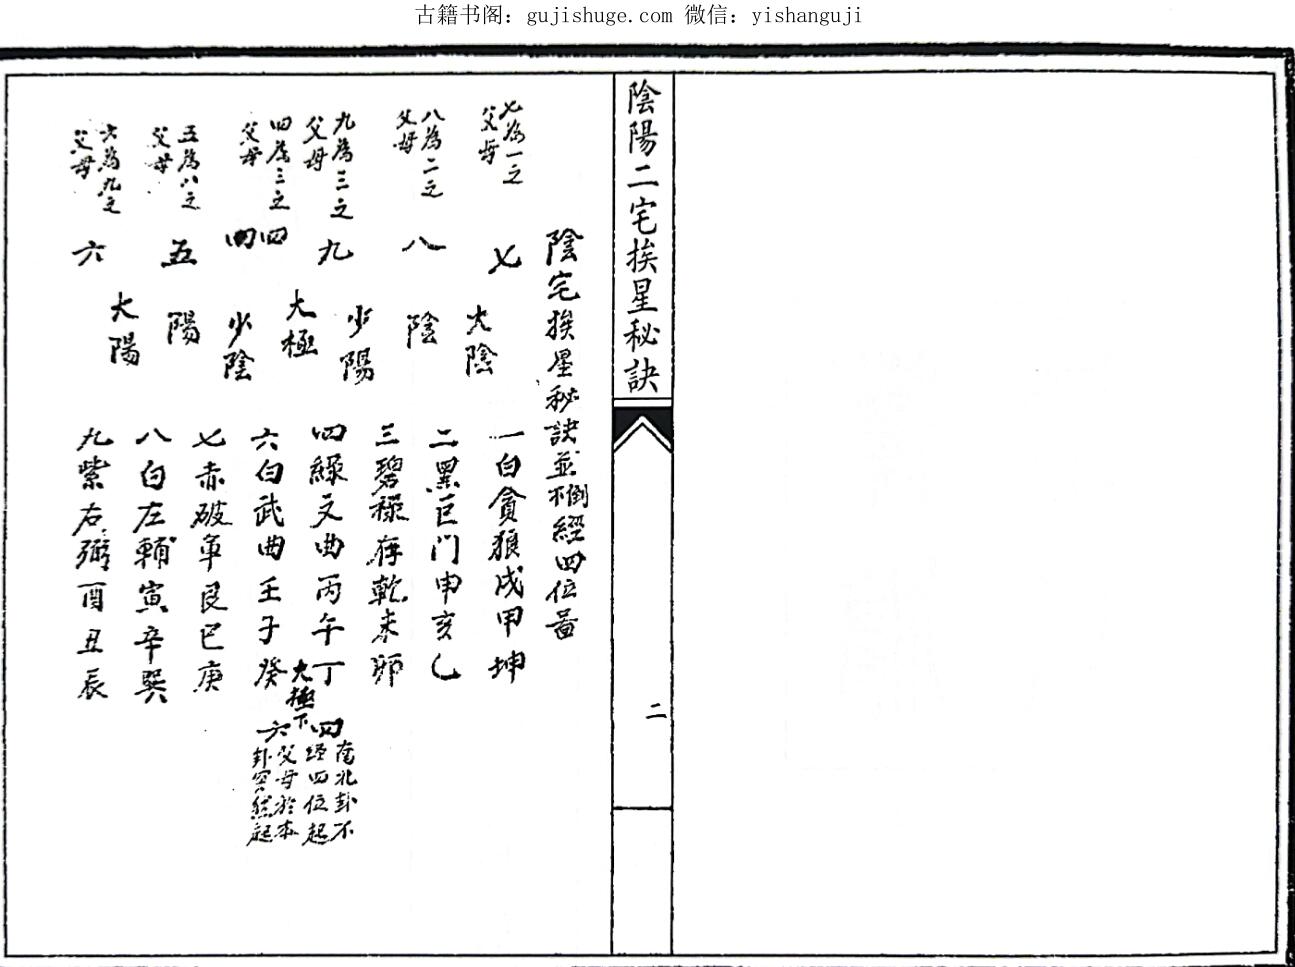 古籍书阁：gujishuge.com 微信：yishanguji
陰陽二宅挨星秘訣
二
陰宅挨星秘訣並不倒經四位啚
七為一之父母
七
太陰
一白貪狼戌甲坤
八為二之父母
八
陰
二黑巨门申亥乙
九為三之父母
九
少陽
三碧祿存乾未卯
四為三之父母
四四
大極
少陰
四綠文曲丙午丁
大極下
四
南北卦不經四位起
六白武曲壬子癸
六
父母於本卦突然起
五為八之父母
五
陽
七赤破軍艮巳庚
六為九之父母
六
大陽
八白左輔寅辛巽
九紫右弼酉丑辰